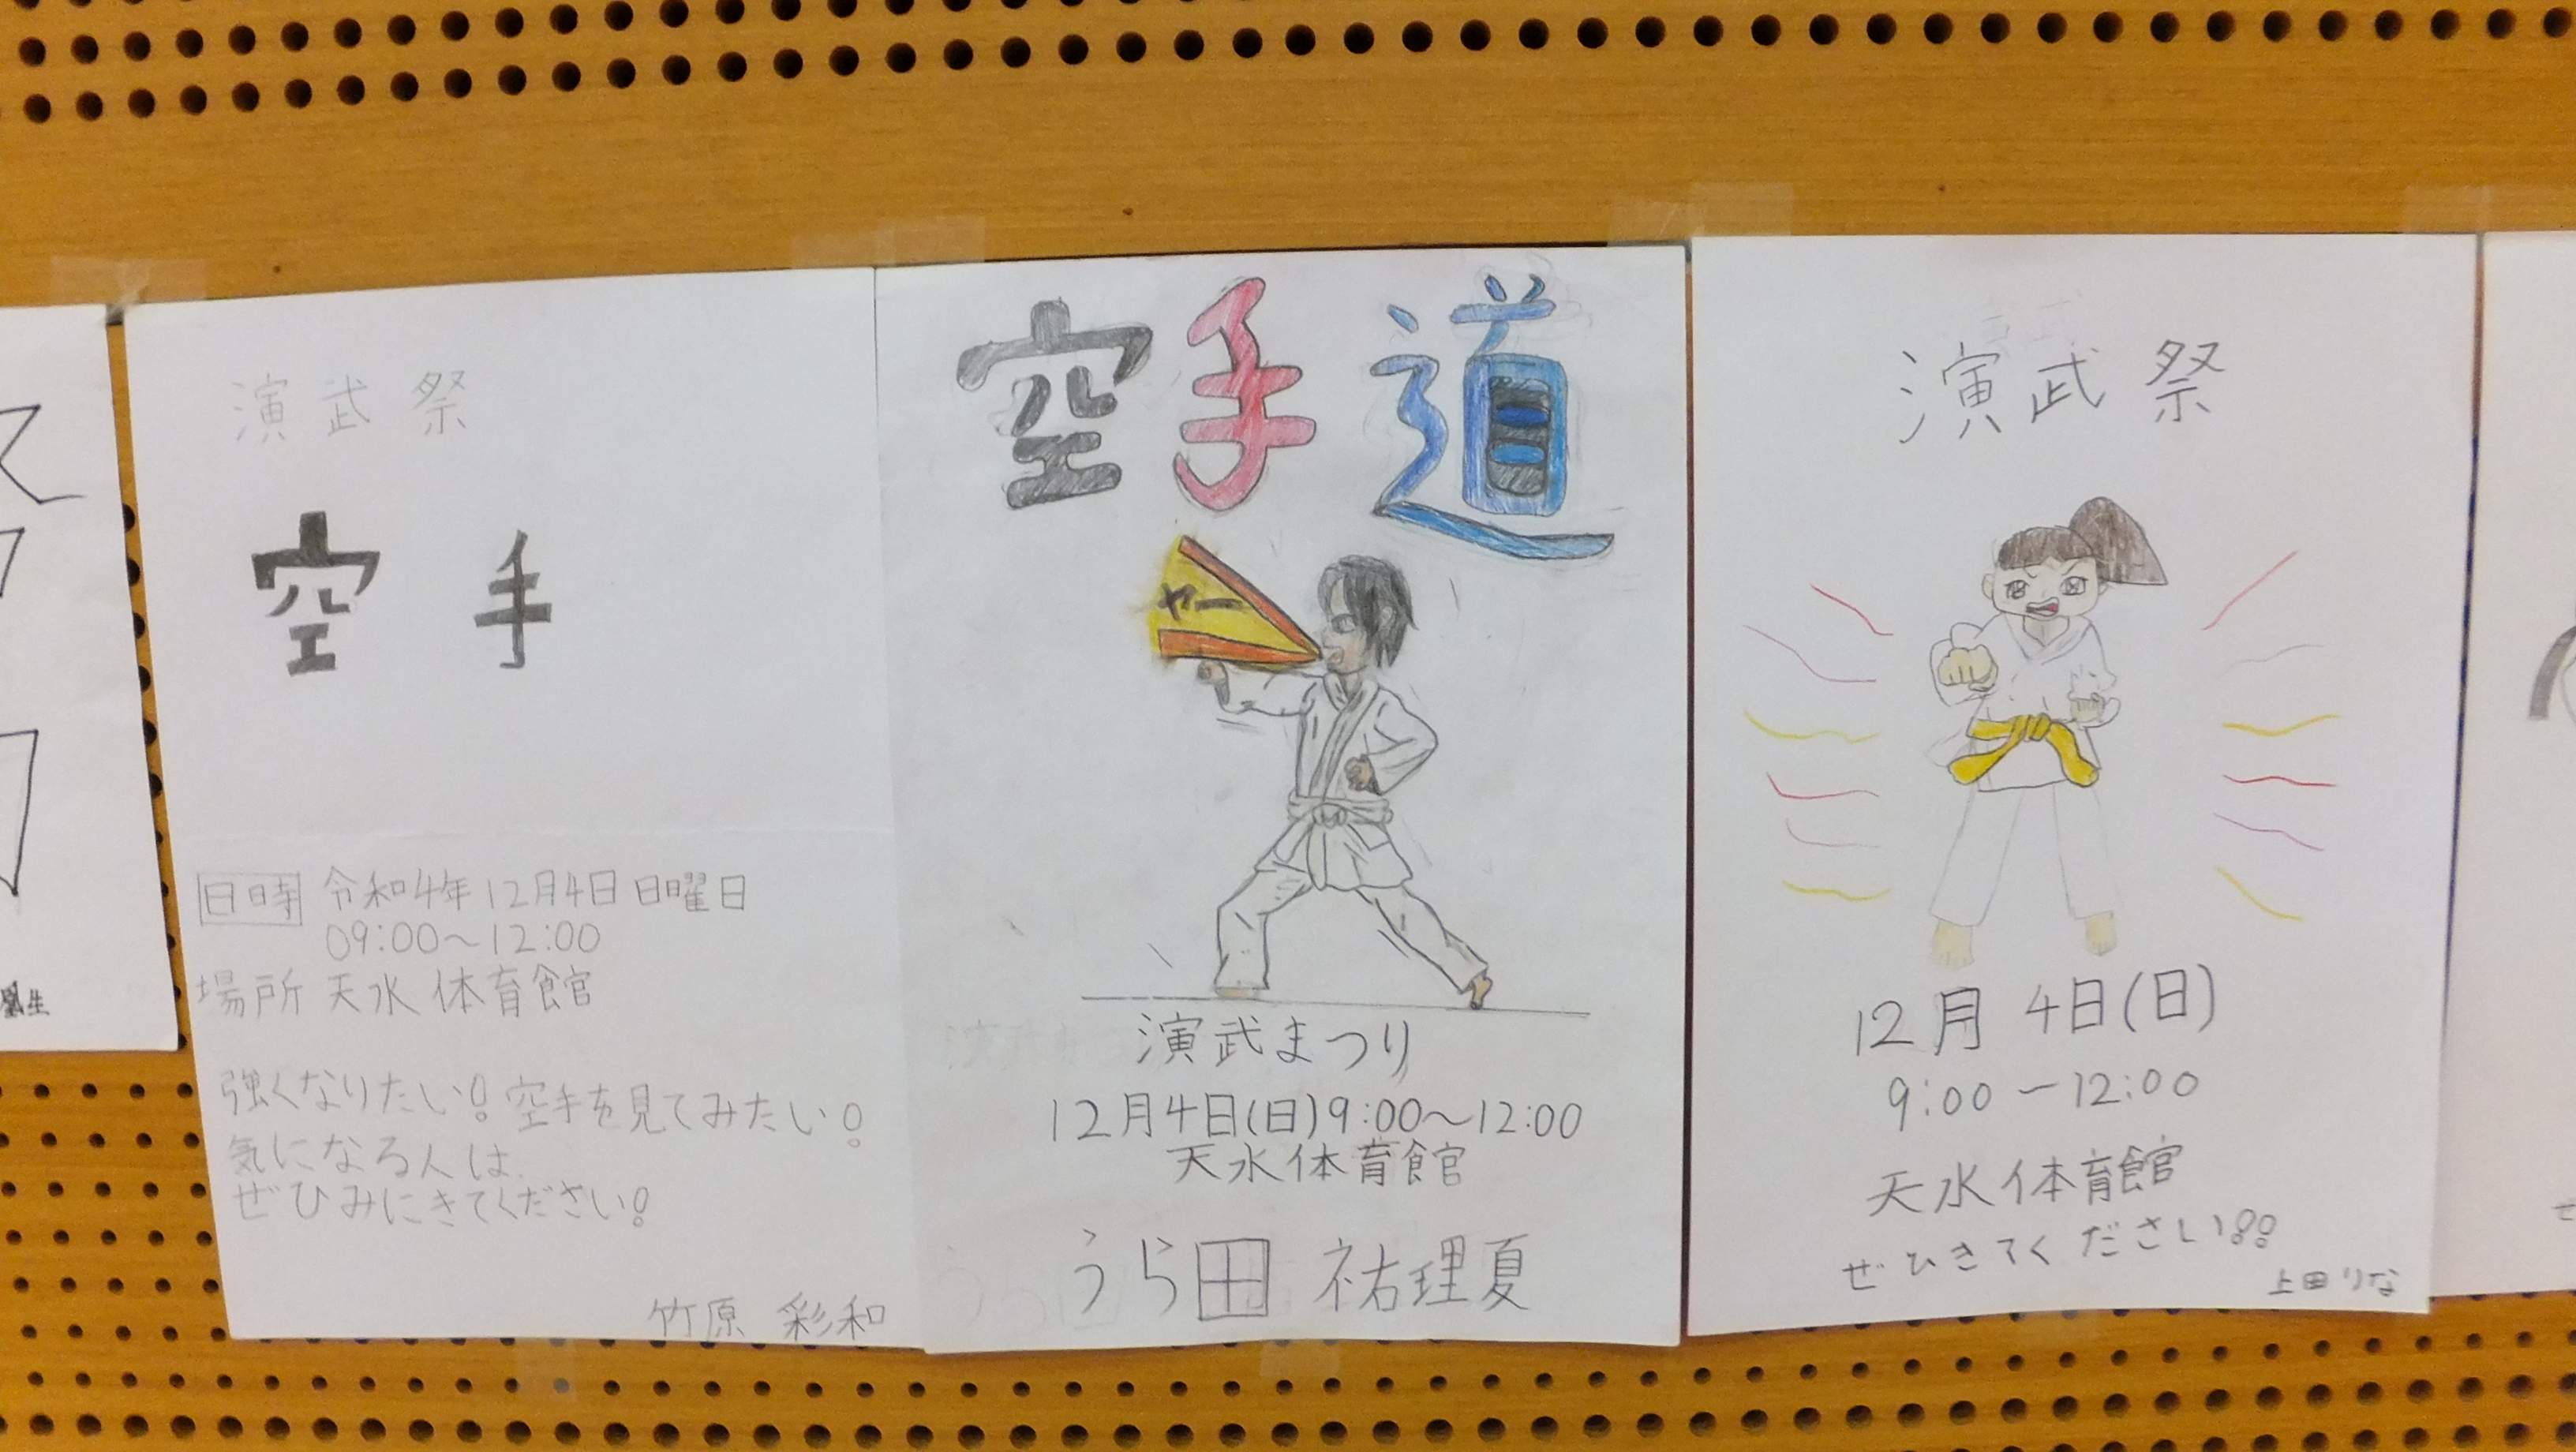 演武祭
空手
日時 令和4年12月4日 日曜日
09:00〜12:00
場所 天水体育館
強くなりたい! 空手を見てみたい!
気になる人は
ぜひみにきてください!
竹原 彩和
空手道
ヤー
演武まつり
12月4日(日)9:00〜12:00
天水体育館
うら田 祐理夏
演武祭
12月 4日(日)
9:00ー12:00
天水体育館
ぜひきてください!!
上田りな